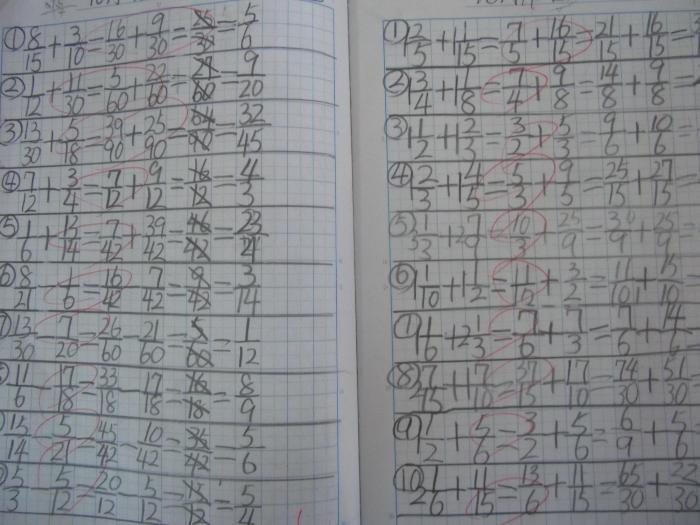 ① 8/15 + 3/10 = 16/30 + 9/30 = 25/30 = 5/6
② 1/12 + 11/30 = 5/60 + 22/60 = 27/60 = 9/20
③ 13/30 + 5/18 = 39/90 + 25/90 = 64/90 = 32/45
④ 7/12 + 3/4 = 7/12 + 9/12 = 16/12 = 4/3
⑤ 1/6 + 13/14 = 7/42 + 39/42 = 46/42 = 23/21
⑥ 8/21 - 1/6 = 16/42 - 7/42 = 9/42 = 3/14
13/30 - 7/20 = 26/60 - 21/60 = 5/60 = 1/12
11/6 - 17/18 = 33/18 - 17/18 = 16/18 = 8/9
15/14 - 5/21 = 45/42 - 10/42 = 35/42 = 5/6
5/3 - 5/12 = 20/12 - 5/12 = 15/12 = 5/4
① 1 2/5 + 1 1/15 = 7/5 + 16/15 = 21/15 + 16/15 =
② 1 3/4 + 1 1/8 = 7/4 + 9/8 = 14/8 + 9/8 =
③ 1 1/2 + 1 2/3 = 3/2 + 5/3 = 9/6 + 10/6 =
④ 1 2/3 + 1 4/5 = 5/3 + 9/5 = 25/15 + 27/15 =
⑤ 3 1/3 + 2 7/9 = 10/3 + 25/9 = 30/9 + 25/9 =
⑥ 1 1/10 + 1 1/2 = 11/15 + 3/2 = 11/10 + 15/10
⑦ 1 1/6 + 2 1/3 = 7/6 + 7/3 = 7/6 + 14/6
⑧ 2 7/15 + 1 7/10 = 37/15 + 17/10 = 74/30 + 51/30
⑨ 1 1/2 + 5/6 = 3/2 + 5/6 = 6/9 + 5/6
⑩ 2 1/6 + 11/15 = 13/6 + 11/15 = 65/30 + 22/30